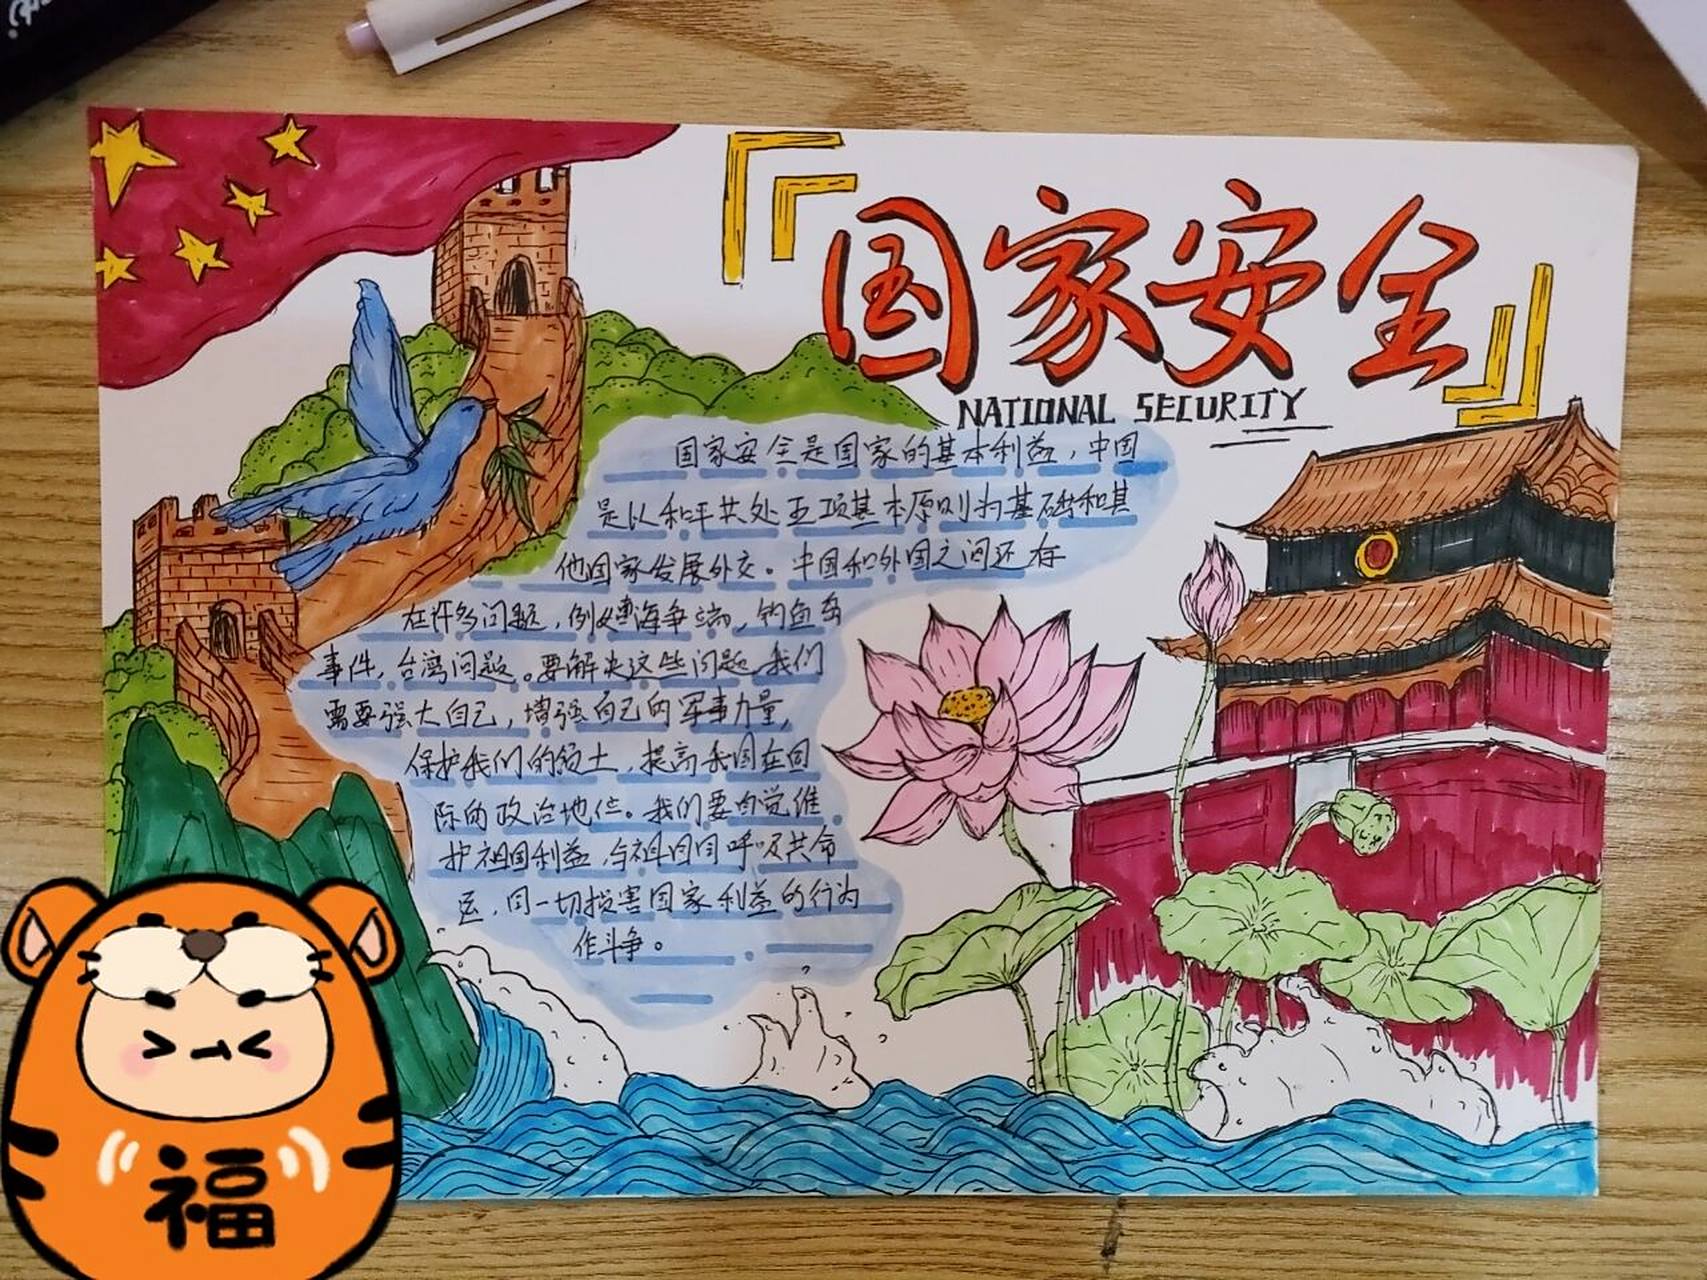 国家安全
NATIONAL SECURITY
国家安全是国家的基本利益，中国
是以和平共处五项基本原则为基础和其
他国家发展外交。中国和外国之间还存
在许多问题，例如海争端，钓鱼岛
事件，台湾问题。要解决这些问题，我们
需要强大自己，增强自己的军事力量，
保护我们的领土，提高我国在国
际的政治地位。我们要自觉维
护祖国利益，与祖国同呼吸共命
运，同一切损害国家利益的行为
作斗争。
福